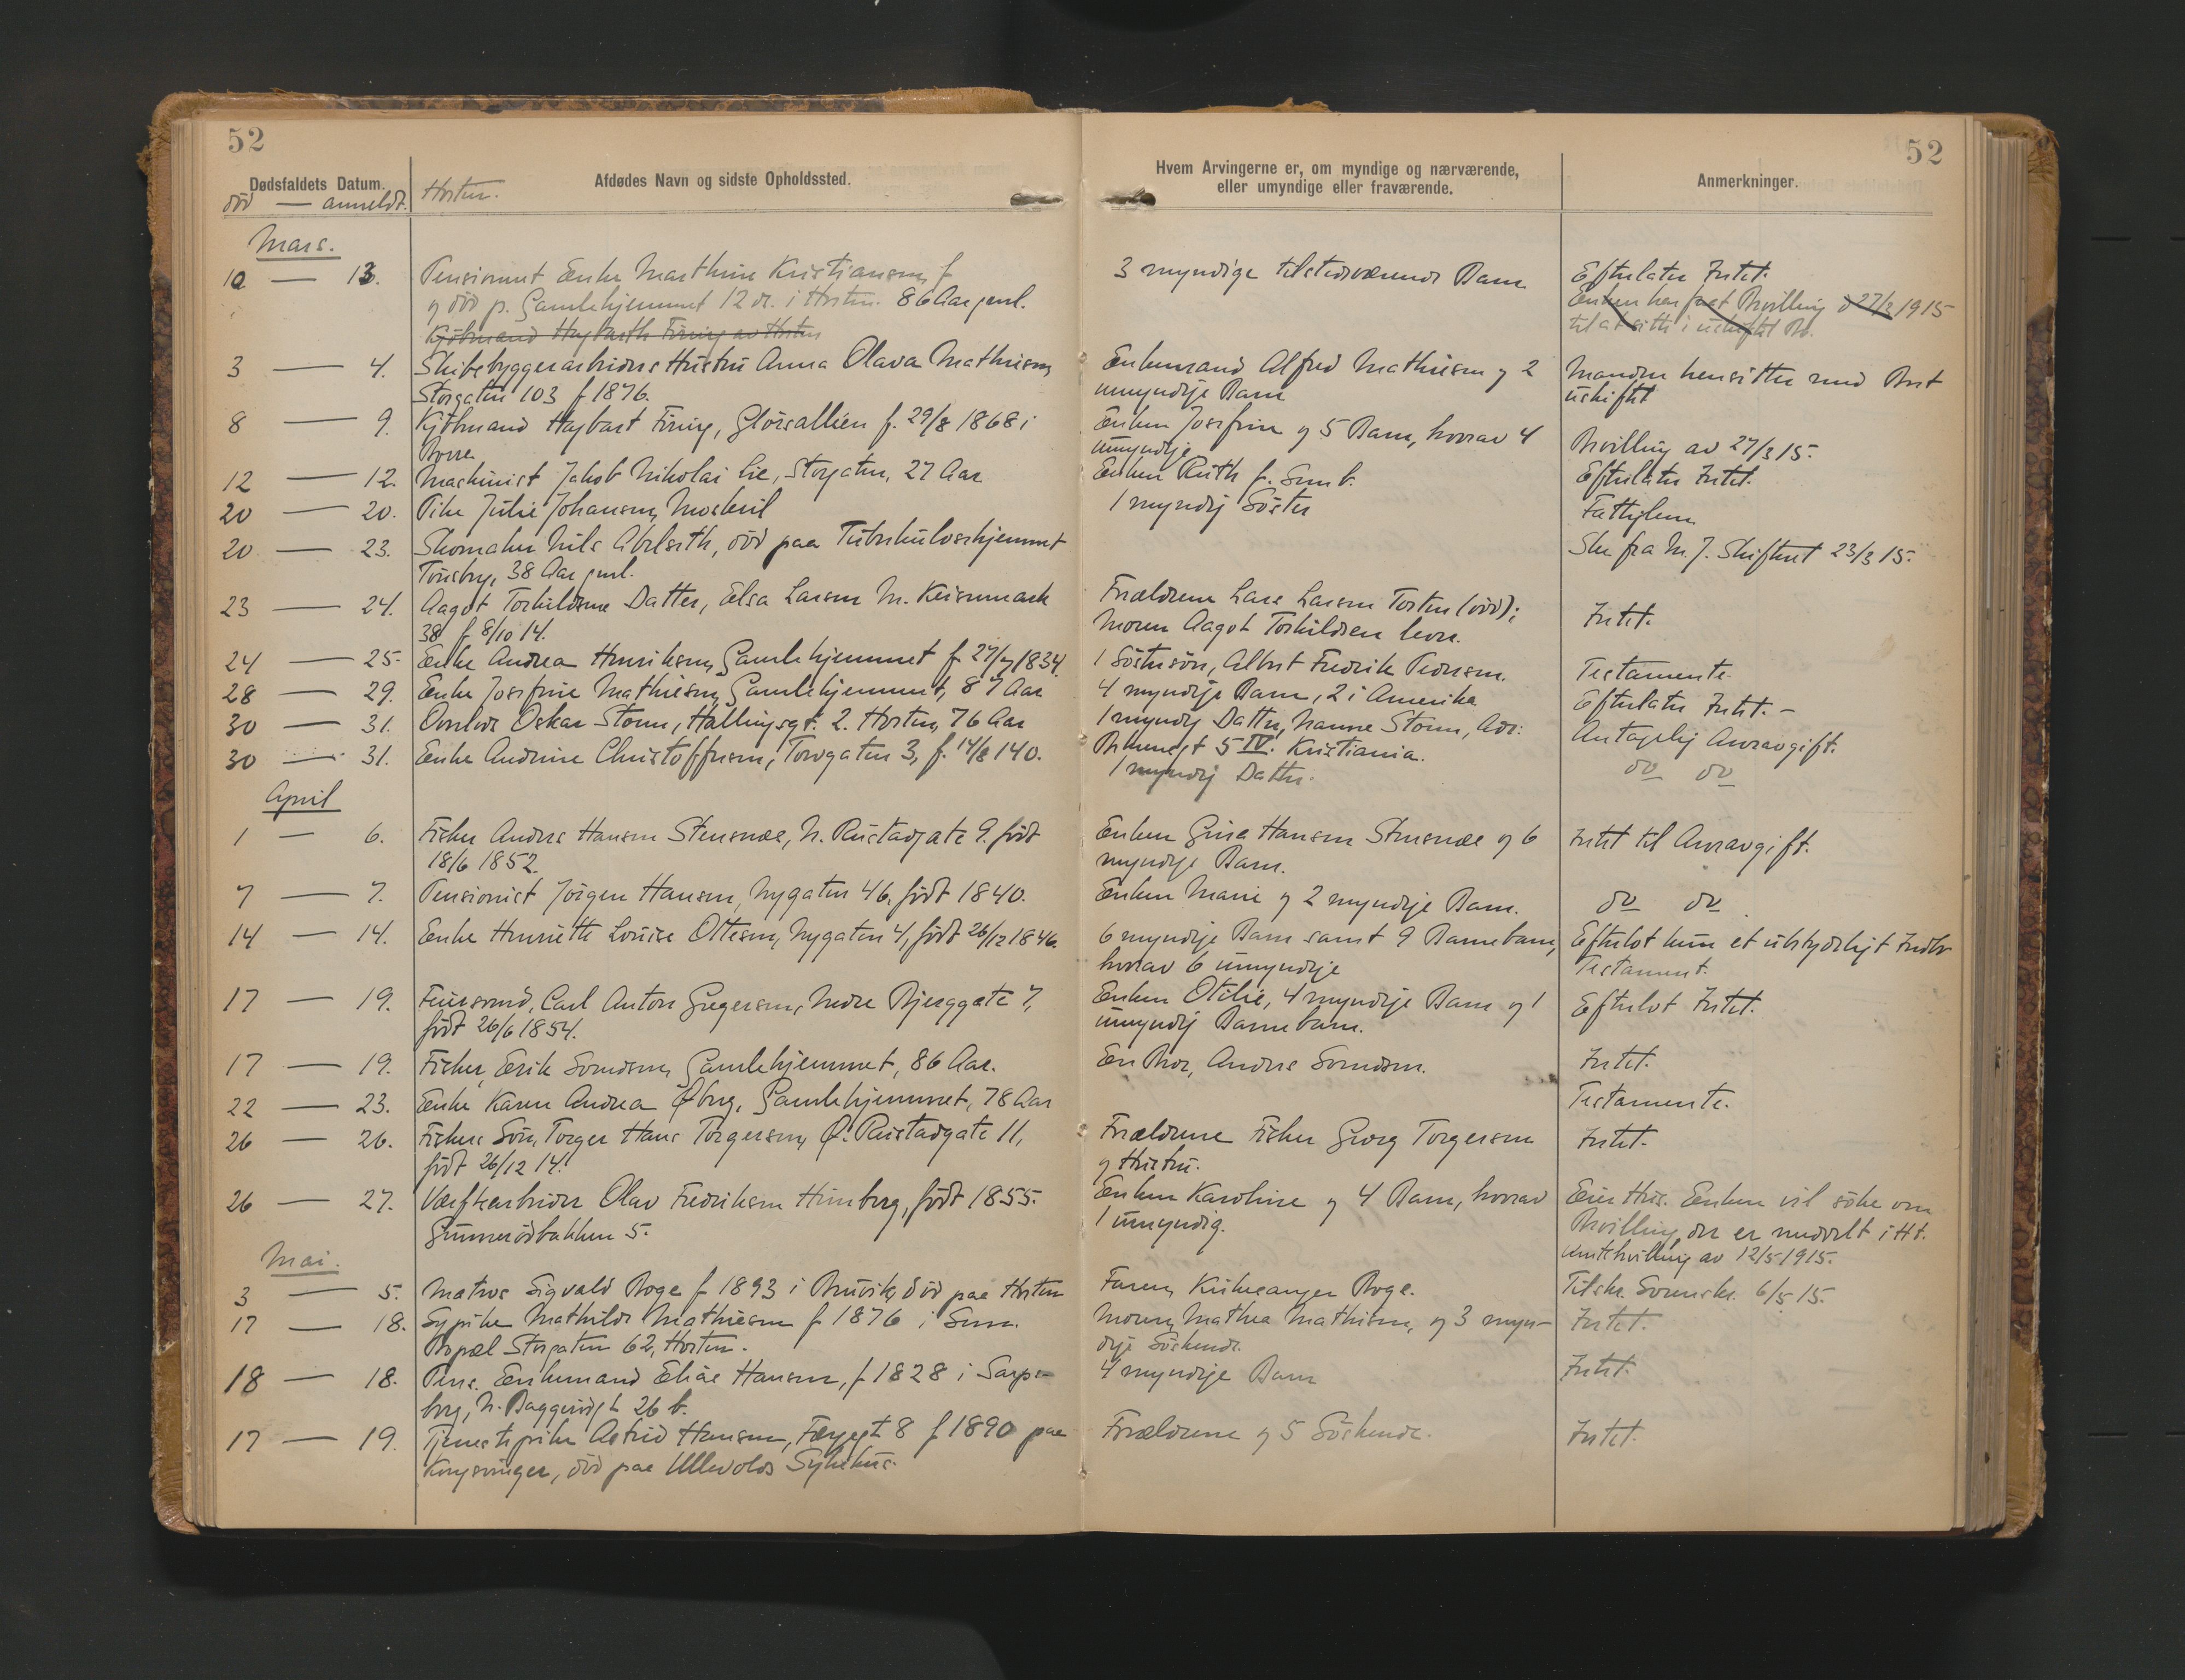 52
52
Dødsfaldets Datum.
död — anmeldt.
Afdødes Navn og sidste Opholdssted.
Horten.
Hvem Arvingerne er, om myndige og nærværende,
eller umyndige eller fraværende.
Anmerkninger.
Mars.
10 — 13. Pensionert Enke Marthine Kristiansen f 3 myndige tilstedeværende Barn Efterlater Intet.
og död p. Gamlehjemmet 12 ds. i Horten. 86 Aar gml. Enken har faat Bevilling d 27/3 1915
Kjöbmand Hagbarth Föring av Horten til at sitte i uskiftet Bo.
3 — 4. Skibsbyggerarbeiders Hustru Anna Olava Mathisen, Enkemand Alfred Mathisen og 2 Manden hensitter med Boet
Storgaten 103 f 1876. umyndige Barn uskiftet
8 — 9. Kjöbmand Hagbart Föring, f. 29/8 1868 i Enken Josefine og 5 Barn, hvorav 4
Borre umyndige Bevilling av 27/3 15.
12 — 12. Maskinist Jakob Nikolai Lie, Storgaten, 27 Aar Enken Ruth f. Efterlater Intet.
20 — 20. Pike Julie Johansen, 1 myndig Söster Fattiglem
20 — 23. Skomaker Nils Abelseth, död paa Tuberkulosehjemmet Skr fra N. J. Skifteret 23/3 15.
Tönsberg, 38 Aar gml.
23 — 24. Aagot Torkildsens Datter, Elsa Larsen N. Keisemark Forældrene Lars Larsen Torten (död); Intet.
38 f 8/10 14. Moren Aagot Torkildsen lever.
24 — 25. Enke Andrea Henriksen, Gamlehjemmet f 27/7 1834. 1 Söstersön, Albert Fredrik Pedersen. Testamente.
28 — 29. Enke Josefine Mathisen, Gamlehjemmet, 87 Aar 4 myndige Barn, 2 i Amerika Efterlater Intet. –
30 — 31. Oskar Storm, Hallingsgt. 2. Horten, 76 Aar 1 myndig Datter, Nanna Storm, Adr: Antagelig Arveavgift.
30 — 31. Enke Andrine Christoffersen, Torvgaten 3, f. 14/8 140. 5 IV. Kristiania. do do
1 myndig Datter.
April
1 — 6. Fisker Anders Hansen Stensnæs, N. Rustadgate 9. født Enken Gina Hansen Stensnæs og 6 Intet til Arveavgift.
18/6 1852. myndige Barn.
7 — 7. Pensionist Jörgen Hansen, Nygaten 46, født 1840. Enken Marie og 2 myndige Barn. do do
14 — 14. Enke Henriette Louise Ottesen, Nygaten 41, født 26/12 1846. 6 myndige Barn samt 9 Barnebarn, Efterlot kun et ubetydeligt Indbo
hvorav 6 umyndige Testament.
17 — 19. Carl Anton Gregersen, Nedre Bjerggate 7, Enken Otilie, 4 myndige Barn og 1 Efterlot Intet.
født 26/6 1854. umyndig Barnebarn.
17 — 19. Fisker, Erik Svendsen, Gamlehjemmet, 86 Aar. En Bror, Anders Svendsen. Intet.
22 — 23. Enke Karen Andrea Öberg, Gamlehjemmet, 78 Aar Testamente.
26 — 26. Fiskers Sön, Torger Hans Torgersen, Ö. Rustadgate 11, Forældrene Fisker Georg Torgersen Intet.
født 26/12 14. og Hustru.
26 — 27. Værftsarbeider Olav Fredriksen Himberg, født 1855. Enken Karoline og 4 Barn, hvorav Eier Hus. Enken vil söke om
Gunnerödbakken 5. 1 umyndig. Bevilling, der er meddelt i Ht.
Amtsbevilling av 12/5 1915.
Mai.
3 — 5. Matros Sigvald Boge f 1893 i Bruvik, död paa Horten Faren, Kirkesanger Boge. Tilskr. Sorenskr. 6/5 15.
17 — 18. Sypike Mathilde Mathisen f 1876 i Sem. Moren, Mathea Mathisen, og 3 myn- Intet.
Bopæl Storgaten 62, Horten. dige Söskende.
18 — 18. Pens. Enkemand Elias Hansen, f 1828 i Sarps- 4 myndige Barn Intet.
borg, N. Baggerödgt 26 b.
17 — 19. Tjenestepike Astrid Hansen, Færgegt 8 f 1890 paa Forældrene og 5 Söskende. Intet.
Kongsvinger, död paa Ullevolds Sykehus.